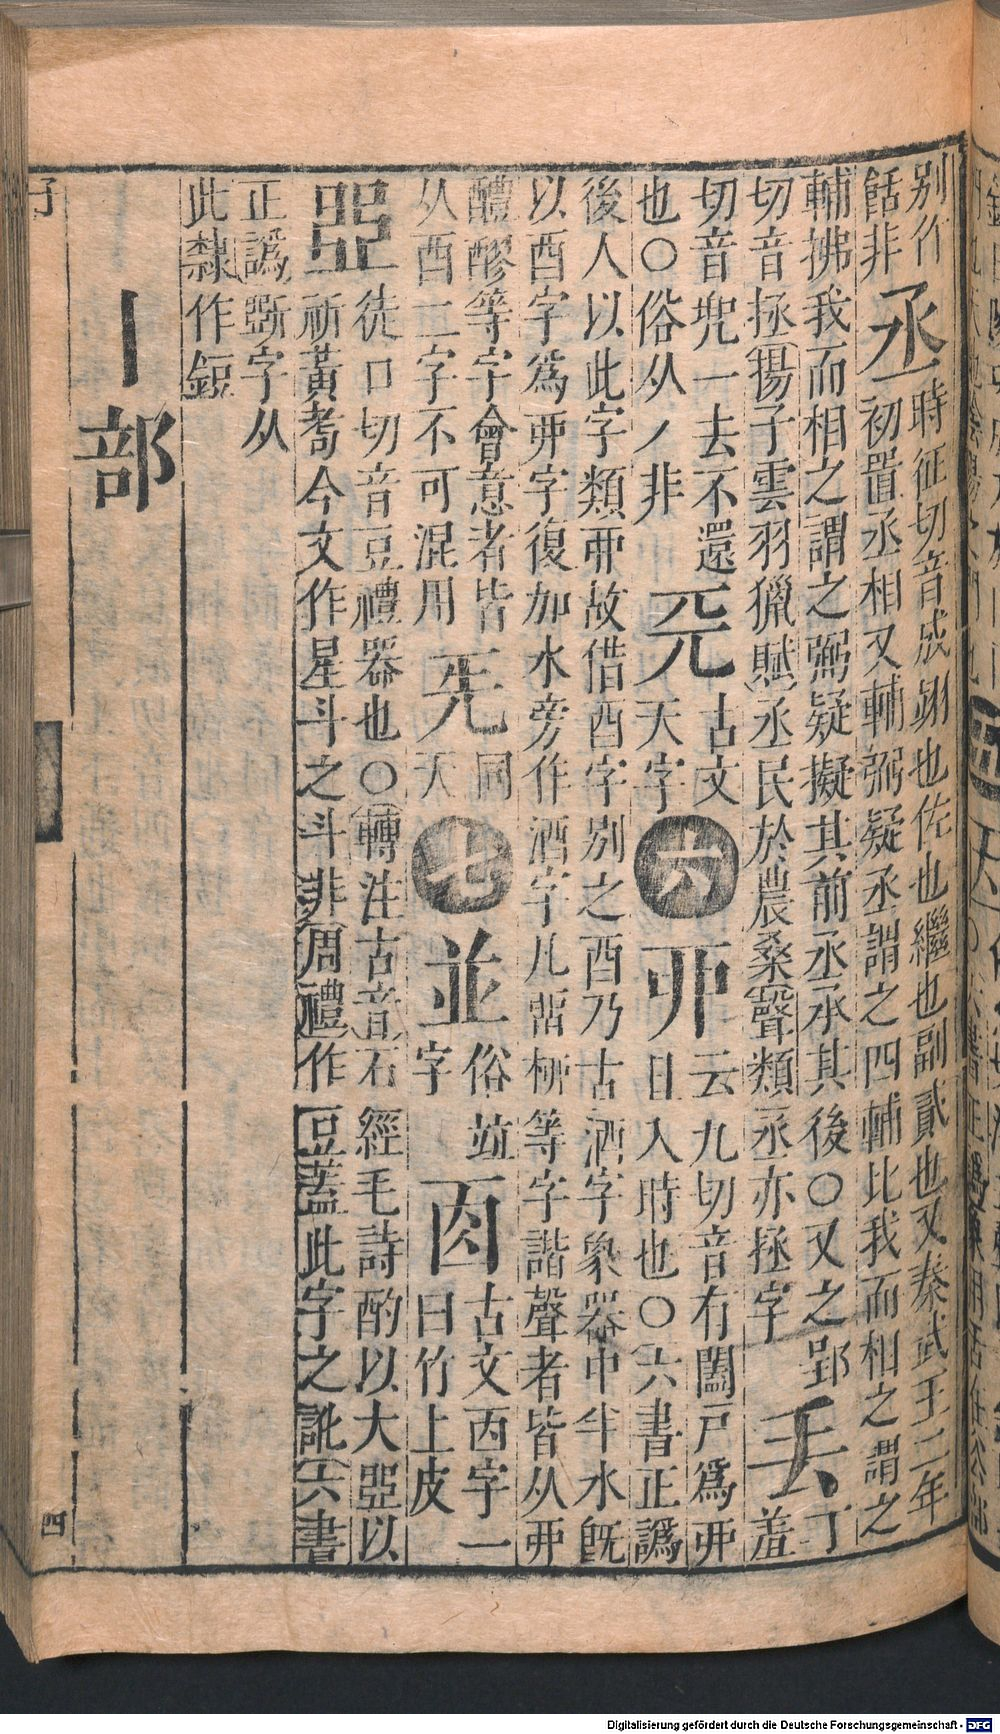 別作丞時征切音成翊也佐也繼也副貳也又秦武王二年
餂非初置丞相又輔弼疑丞謂之四輔比我而相之謂之
輔拂我而相之謂之弼疑擬其前丞承其後○又之郢丢丁
切音拯揚子雲羽獵賦丞民於農桑聲類丞亦拯字羞
切音兜一去不還兂古文六丣云九切音有闔戶爲丣
也○俗从丿非天字日入時也○六書正譌
後人以此字類丣故借酉字別之酉乃古酒字象器中半水旣
以酉字爲丣字復加水旁作酒字凡畱栁等字諧聲者皆从丣
醴醪等字會意者皆兂同七並俗竝㐁古文西字一
从酉二字不可混用天字曰竹上皮
𠁁徒口切音豆禮器也○轉注古音石經毛詩酌以大𠁁以
祈黃耇今文作星斗之斗非周禮作豆蓋此字之訛六書
正譌斲字从
此隸作
丨部
子
四
Digitalisierung gefördert durch die Deutsche Forschungsgemeinschaft - DFG